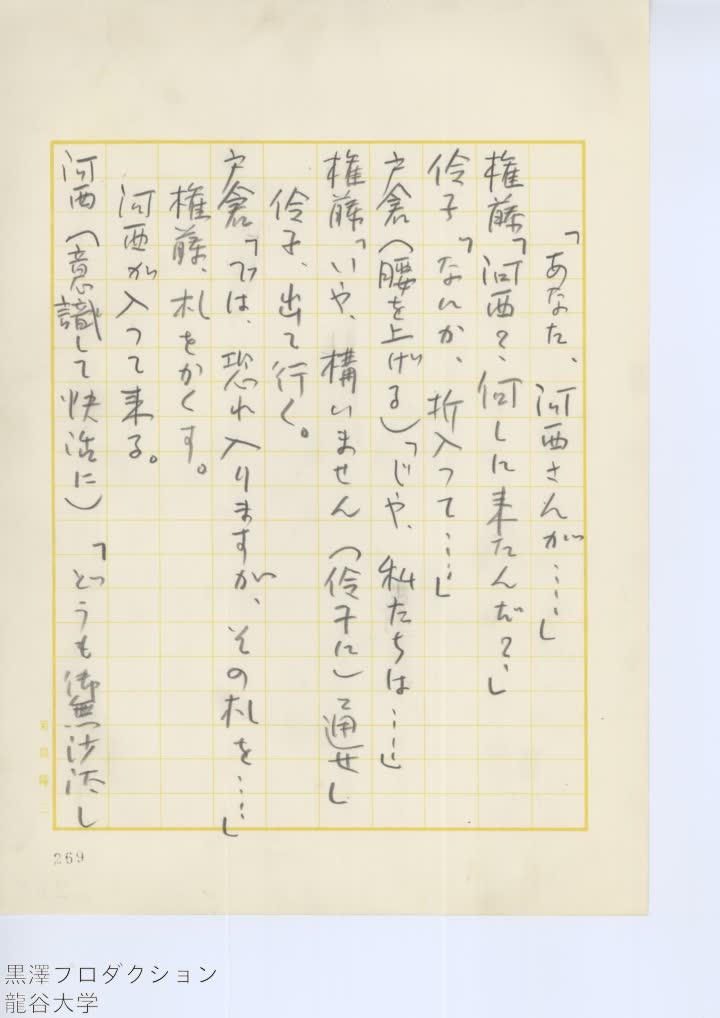 「あなた、河西さんが……」
権藤「河西？、何しに来たんだ？、」
伶子「なにか、折入って……」
戸倉（腰を上げる）「じや、私たちは……」
権藤「いや、構いません（伶子に）通せ」
伶子、出て行く。
戸倉「では、恐れ入りますが、その札を……」
権藤、札をかくす。
河西が入って来る。
河西（意識して快活に）「どうも御無沙汰し
269
黒澤プロダクション
龍谷大学